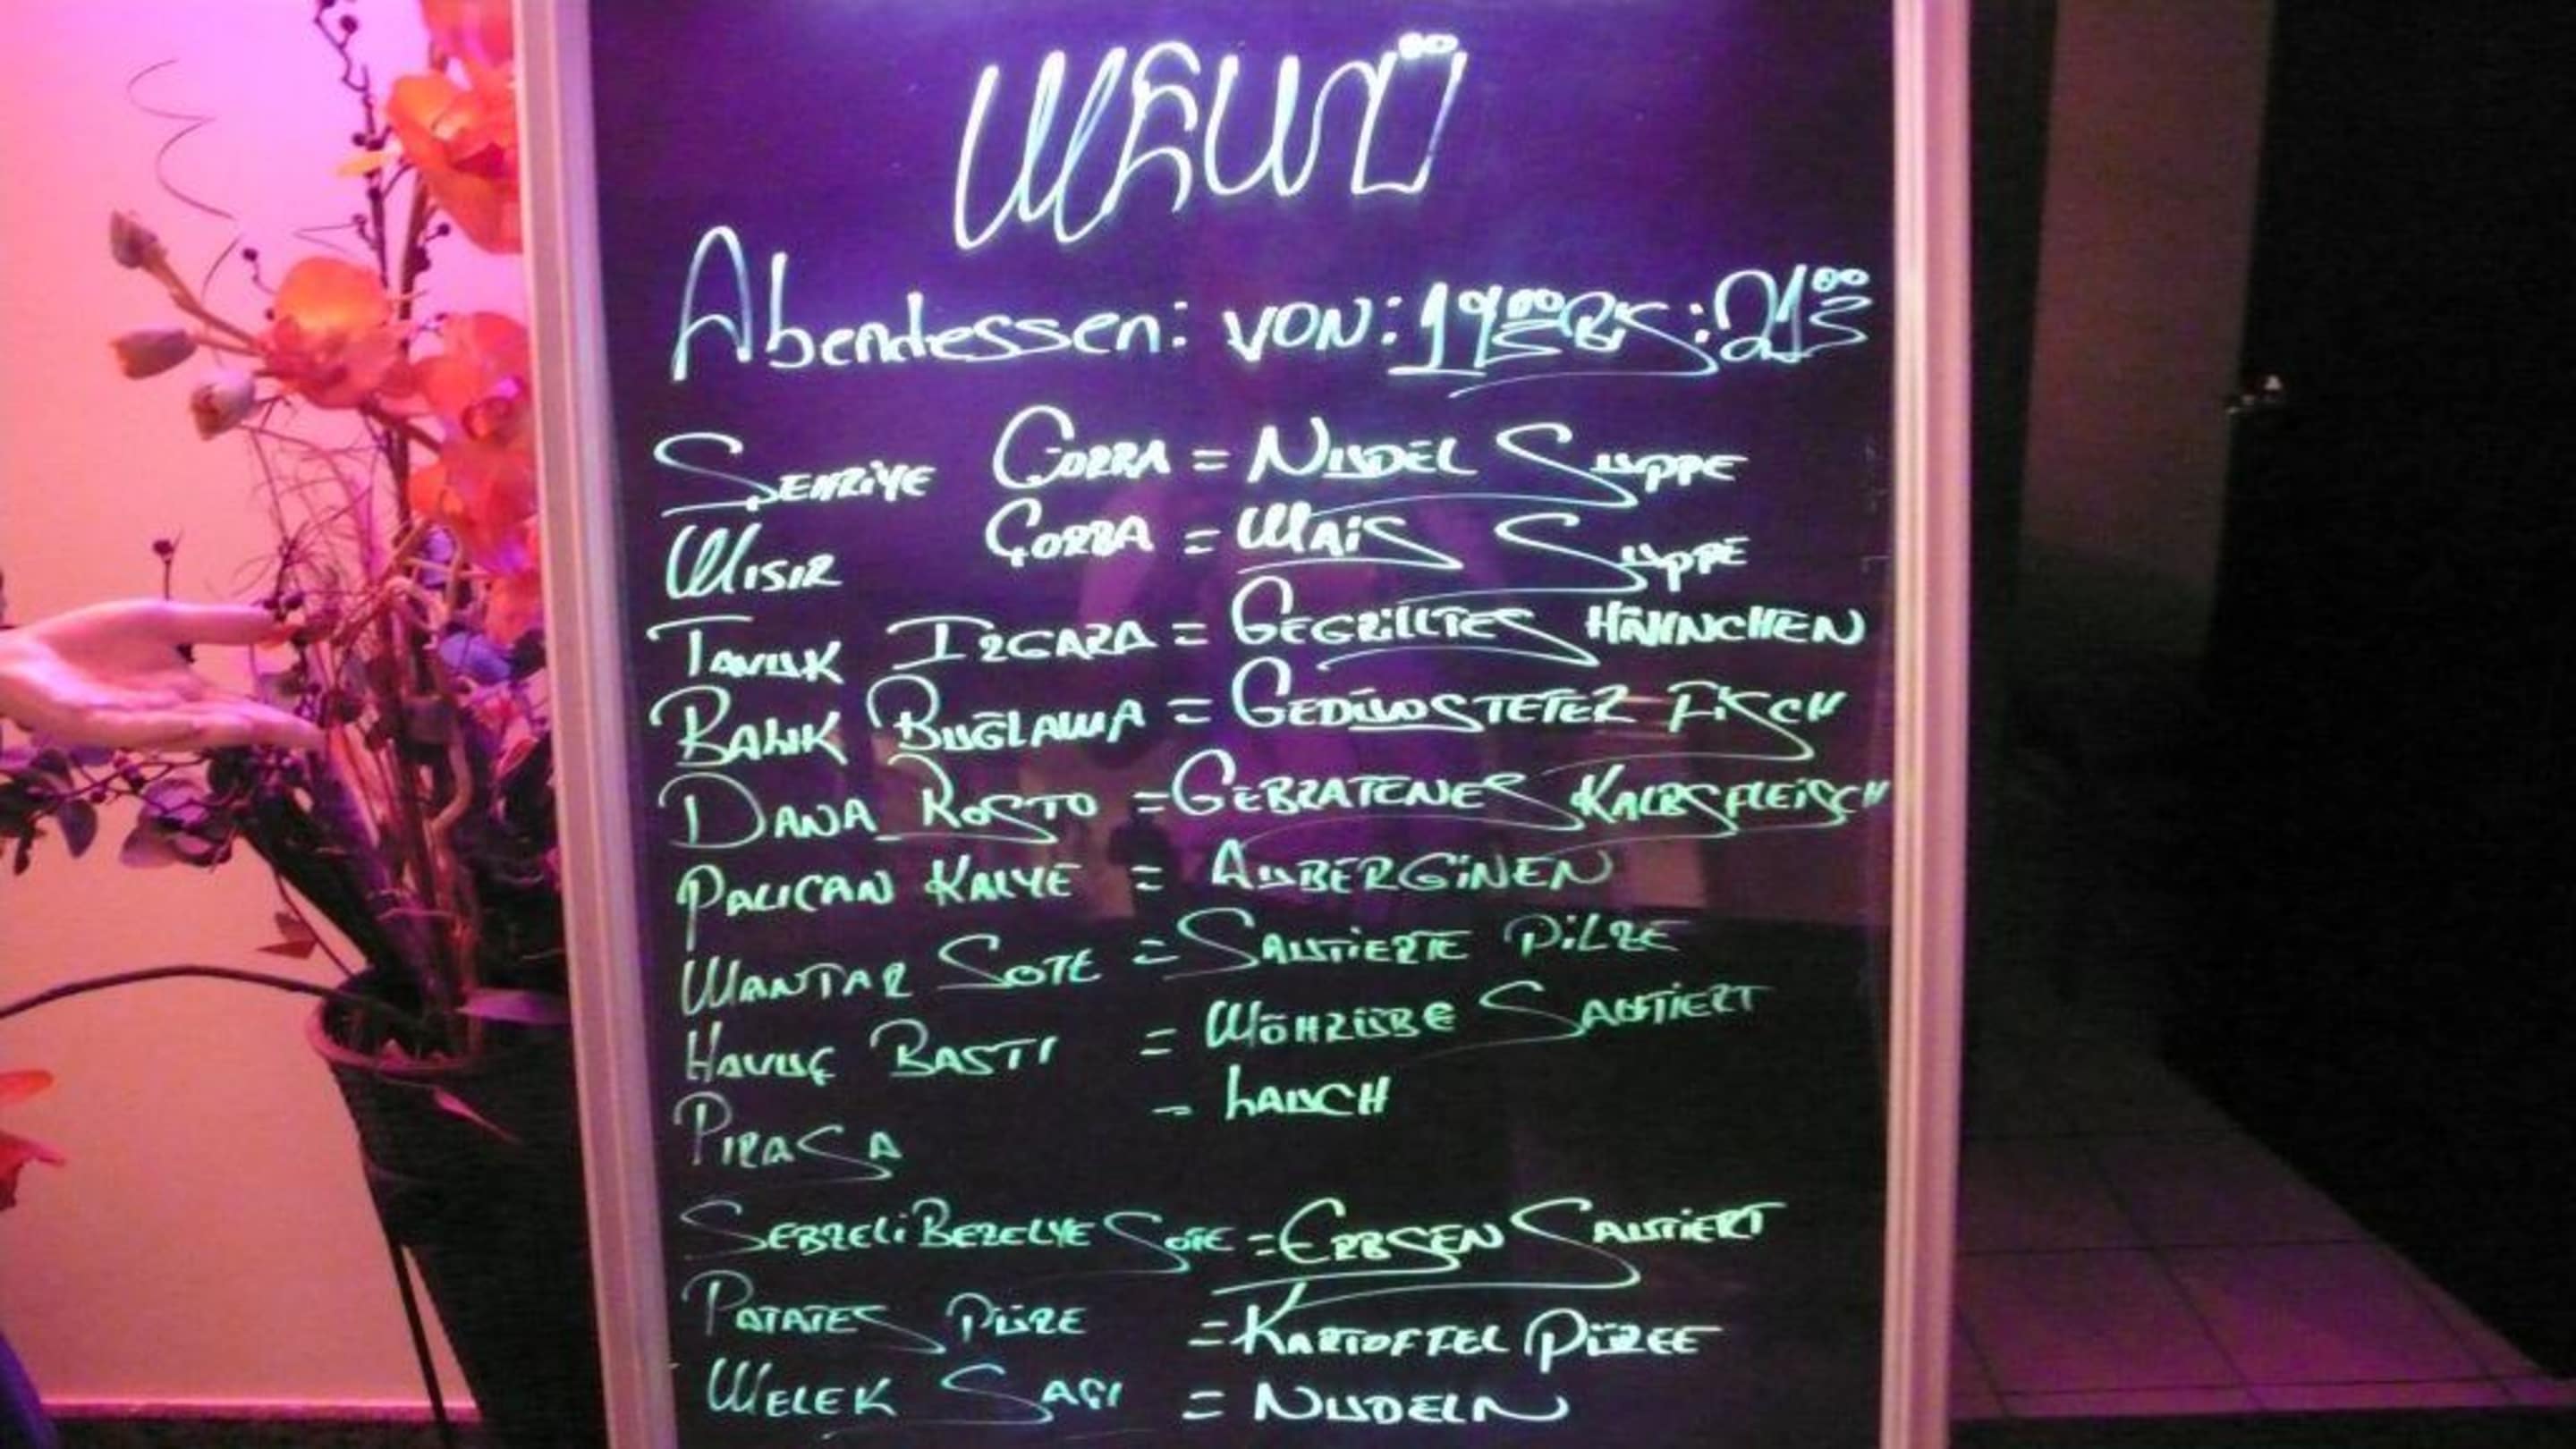 Menü
Abendessen: VON: 19 00 Bis: 21 00
ŞEHRİYE ÇORBA = NUDEL SUPPE
MISIR ÇORBA = MAiS SUPPE
TAVUK IZGARA = GEGRILLTES HÄHNCHEN
BALIK BUĞLAMA = GEDÜNSTETER FiSCH
DANA ROSTO = GEBRATENES KALBSFLEiSCH
PALICAN KALYE = AUBERGiNEN
MANTAR SOTE = SAUTiERTE PiLZE
HAVUÇ BASTI = MÖHRÜBE SAUTiERT
PIRASA - LAUCH
SEBZELi BEZELYE SOTE = ERBSEN SAUTiERT
PATATES PÜRE = KARTOFFEL PÜREE
MELEK SAÇI = NUDELN